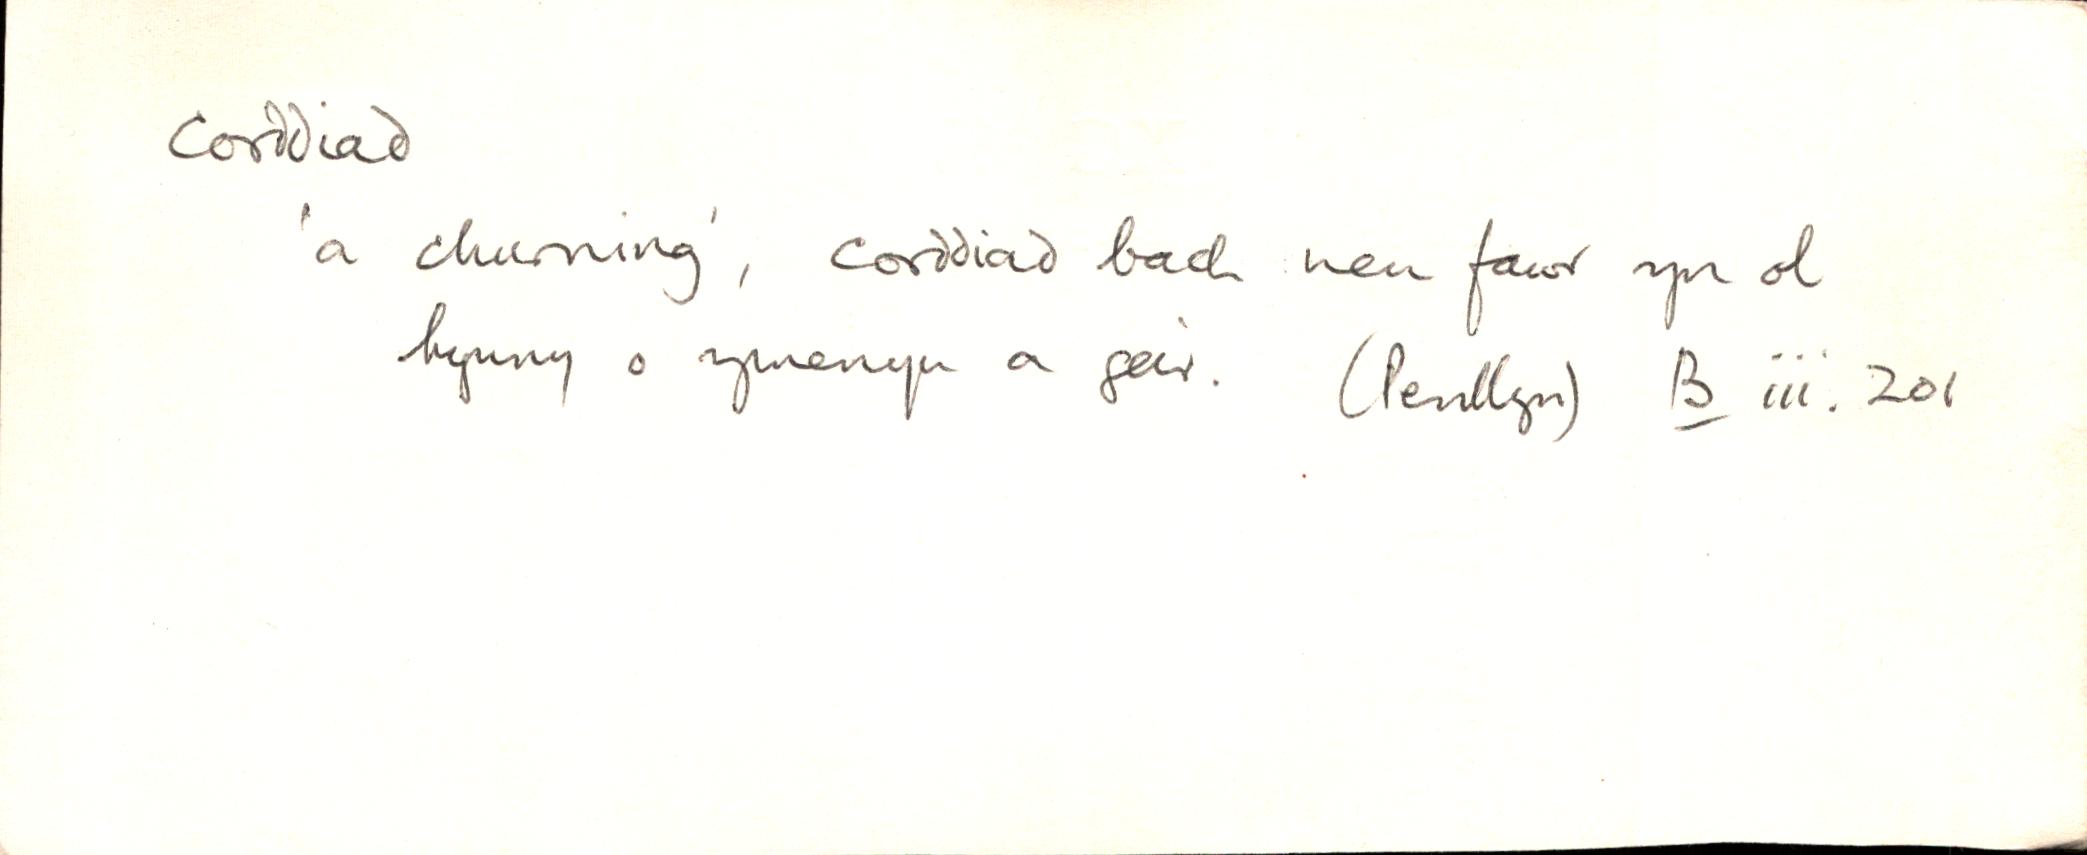 corddiad
'a churning', corddiad bach neu fawr yn ol
hynny o ymenyn a geir. (Penllyn) B iii. 201